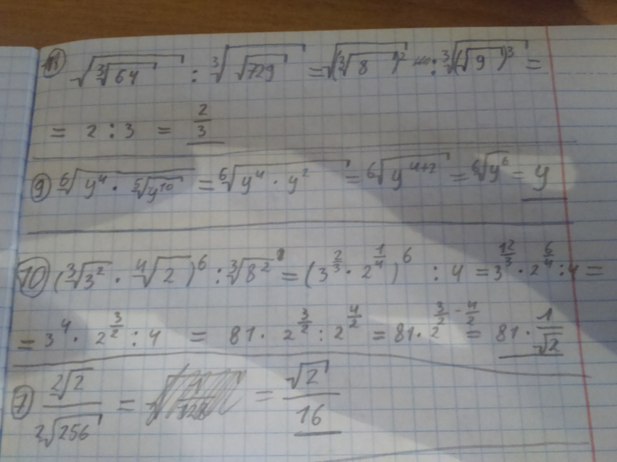 8) √(∛64) : ∛(√729) = √((∛8)²) : ∛((√9)³) =
= 2 : 3 = 2/3
9) ⁶√(y⁴ · ⁵√(y¹⁰)) = ⁶√(y⁴ · y²) = ⁶√(y⁴⁺²) = ⁶√(y⁶) = y
10) (∛(3²) · ⁴√2)⁶ : ∛(8²) = (3^(2/3) · 2^(1/4))⁶ : 4 = 3^(12/3) · 2^(6/4) : 4 =
= 3⁴ · 2^(3/2) : 4 = 81 · 2^(3/2) : 2^(4/2) = 81 · 2^(3/2 - 4/2) = 81 · 1/√2
7) ²√2 / ²√256 = √2 / 16